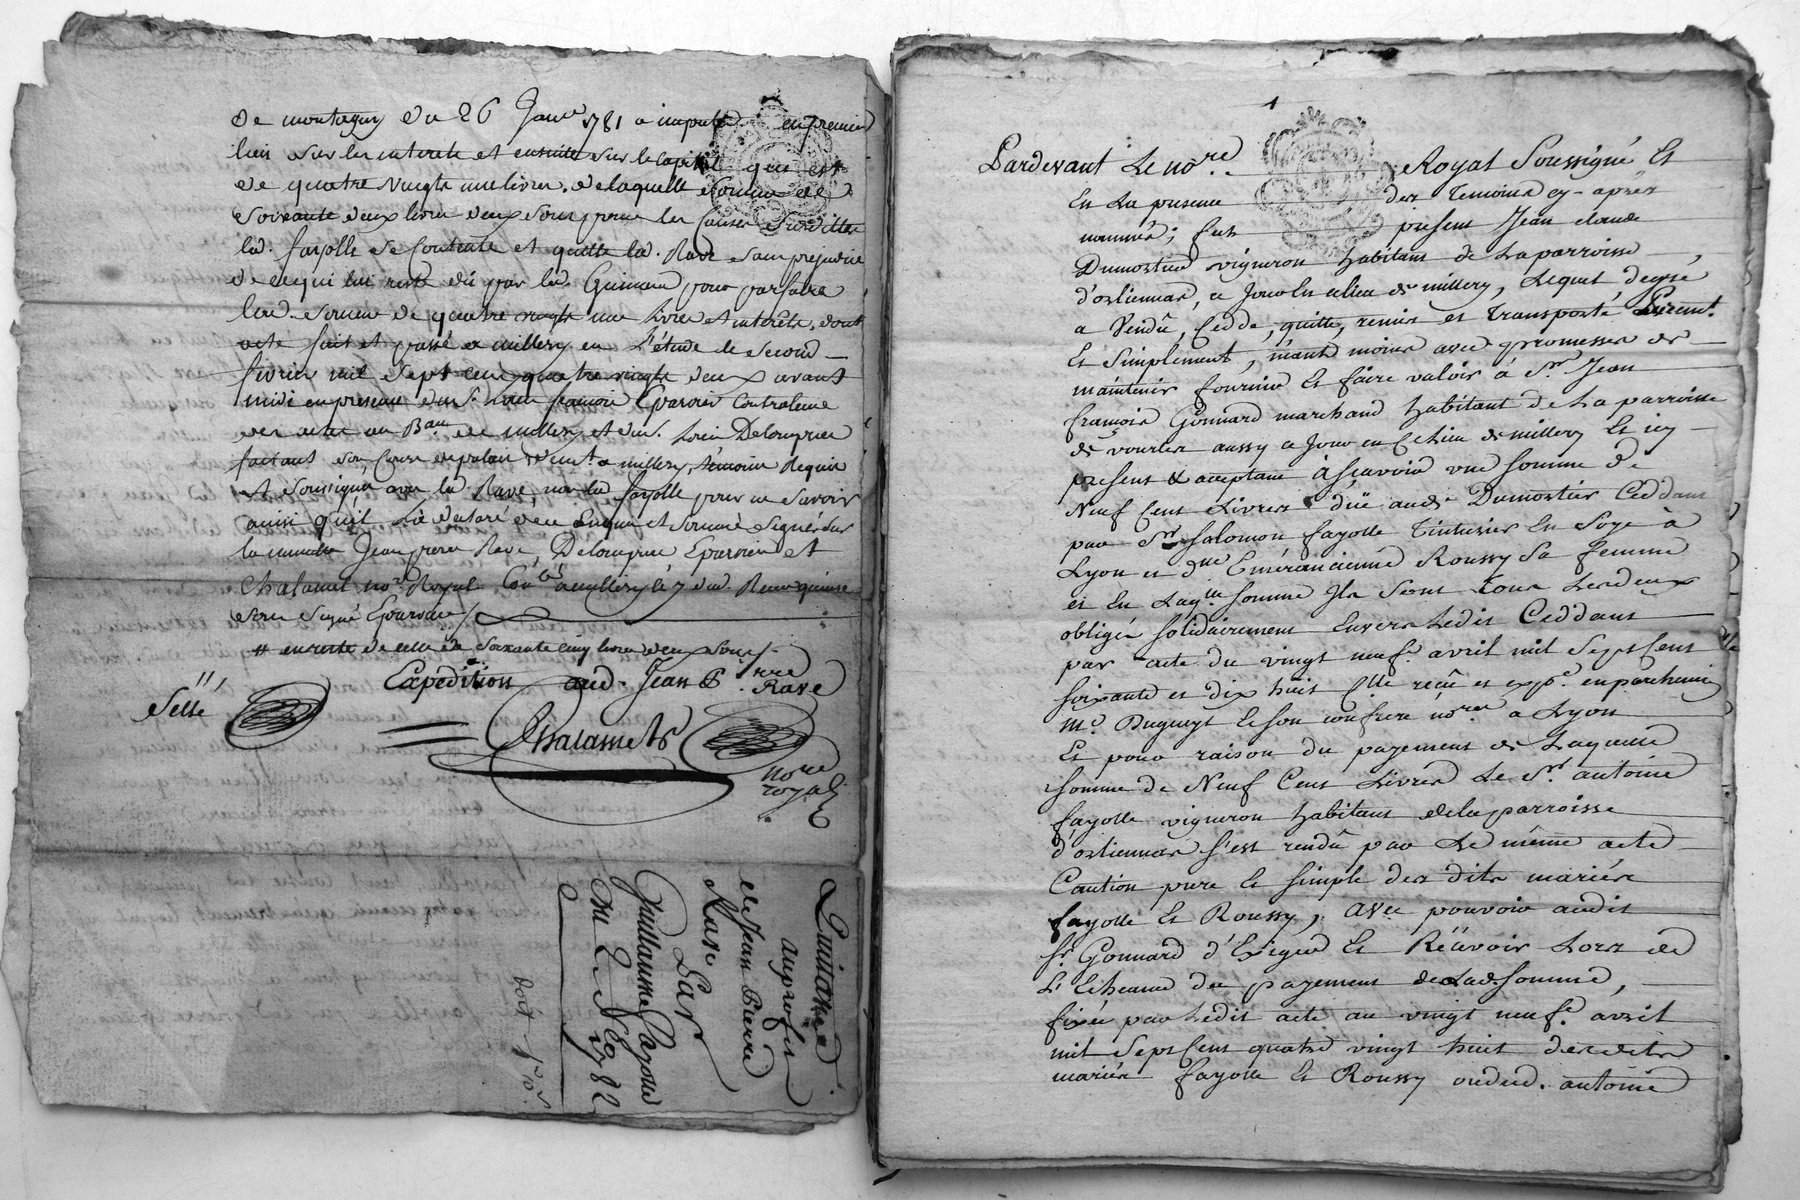 de montagny du 26 Janv. 1781 a imputé en premier
lieu sur les interets et ensuite sur le capital qui est
de quatre vingts une livres, de laquelle somme de
soixante deux livres deux sous pour les causes susdittes
lad. fayolle se contente et quitte led. Rave sans prejudice
de ce qui lui reste dû par led. pour parfaire
lad. somme de quatre vingts une livres et interêts, dont
acte fait et passé a millery en l'étude le second
fevrier mil sept cent quatre vingts deux avant
midi en presence du s. controleur
des actes au Bau de millery et du s. Delorme
faisant son cours de palais a millery, témoins Requis
et soussignés avec led. Rave, non led. fayolle pour ne savoir
ainsi qu'il l'a déclaré de ce enquis et sommé signés sur
la minute Jean pierre Rave, et
Chalamel nore Royal Conlé a millery le 7 dud. Reçu quinze
sous signé
# en reste de celle de soixante cinq livres deux sous
Expédition aud. Jean Prre Rave
Sellé
nore royal
Quittance
au profit
de Jean Pierre
Rave
Par
Guillaume fayolle
du 2. 1782
1
Pardevant Le nore. Royal Soussigné Et
En La presence des Temoins cy-après
nommés; fut present Jean claude
Dumortier vigneron habitant de La parroisse
d'orliennas, ce Jour En ce lieu de millery, Lequel de gré
a Vendû, Cedde, quitte, remis et Transporté Puremt.
Et Simplement, néant moins avec promesses de
maintenir fournir Et faire valoir à Sr. Jean
francois Gonnard marchand habitant de La parroisse
de vourles aussy ce Jour en ce Lieu de millery Et icy
present & acceptant à Scavoir une Somme de
Neuf Cent Livres düe aud. Dumortier Ceddant
par Sr. Salomon fayolle Tinturier En Soye à
Lyon et dme Emérancienne Roussy Sa femme
et En Laqlle somme Ils Sont Tous Les deux
obligés Solidairement Envers Ledit Ceddant
par acte du vingt neuf. avril mil Sept Cent
soixante et dix huit reçu et expé. en parchemin
Me. Duguest Et son confrere nores a Lyon
Et pour raison du payement de Laquelle
somme de Neuf Cent Livres Le Sr. antoine
fayolle vigneron habitant de la parroisse
d'orliennas S'est rendû par Le même acte
Caution pure Et simple des dits mariés
fayolle Et Roussy, avec pouvoir audit
Sr. Gonnard d'Exiger Et Reçevoir Lors de
L'Echeance du payement de Lad. Somme,
fixée par Ledit acte au vingt neuf. avril
mil Sept Cent quatre vingt huit desdits
mariés fayolle Et Roussy oudud. antoine